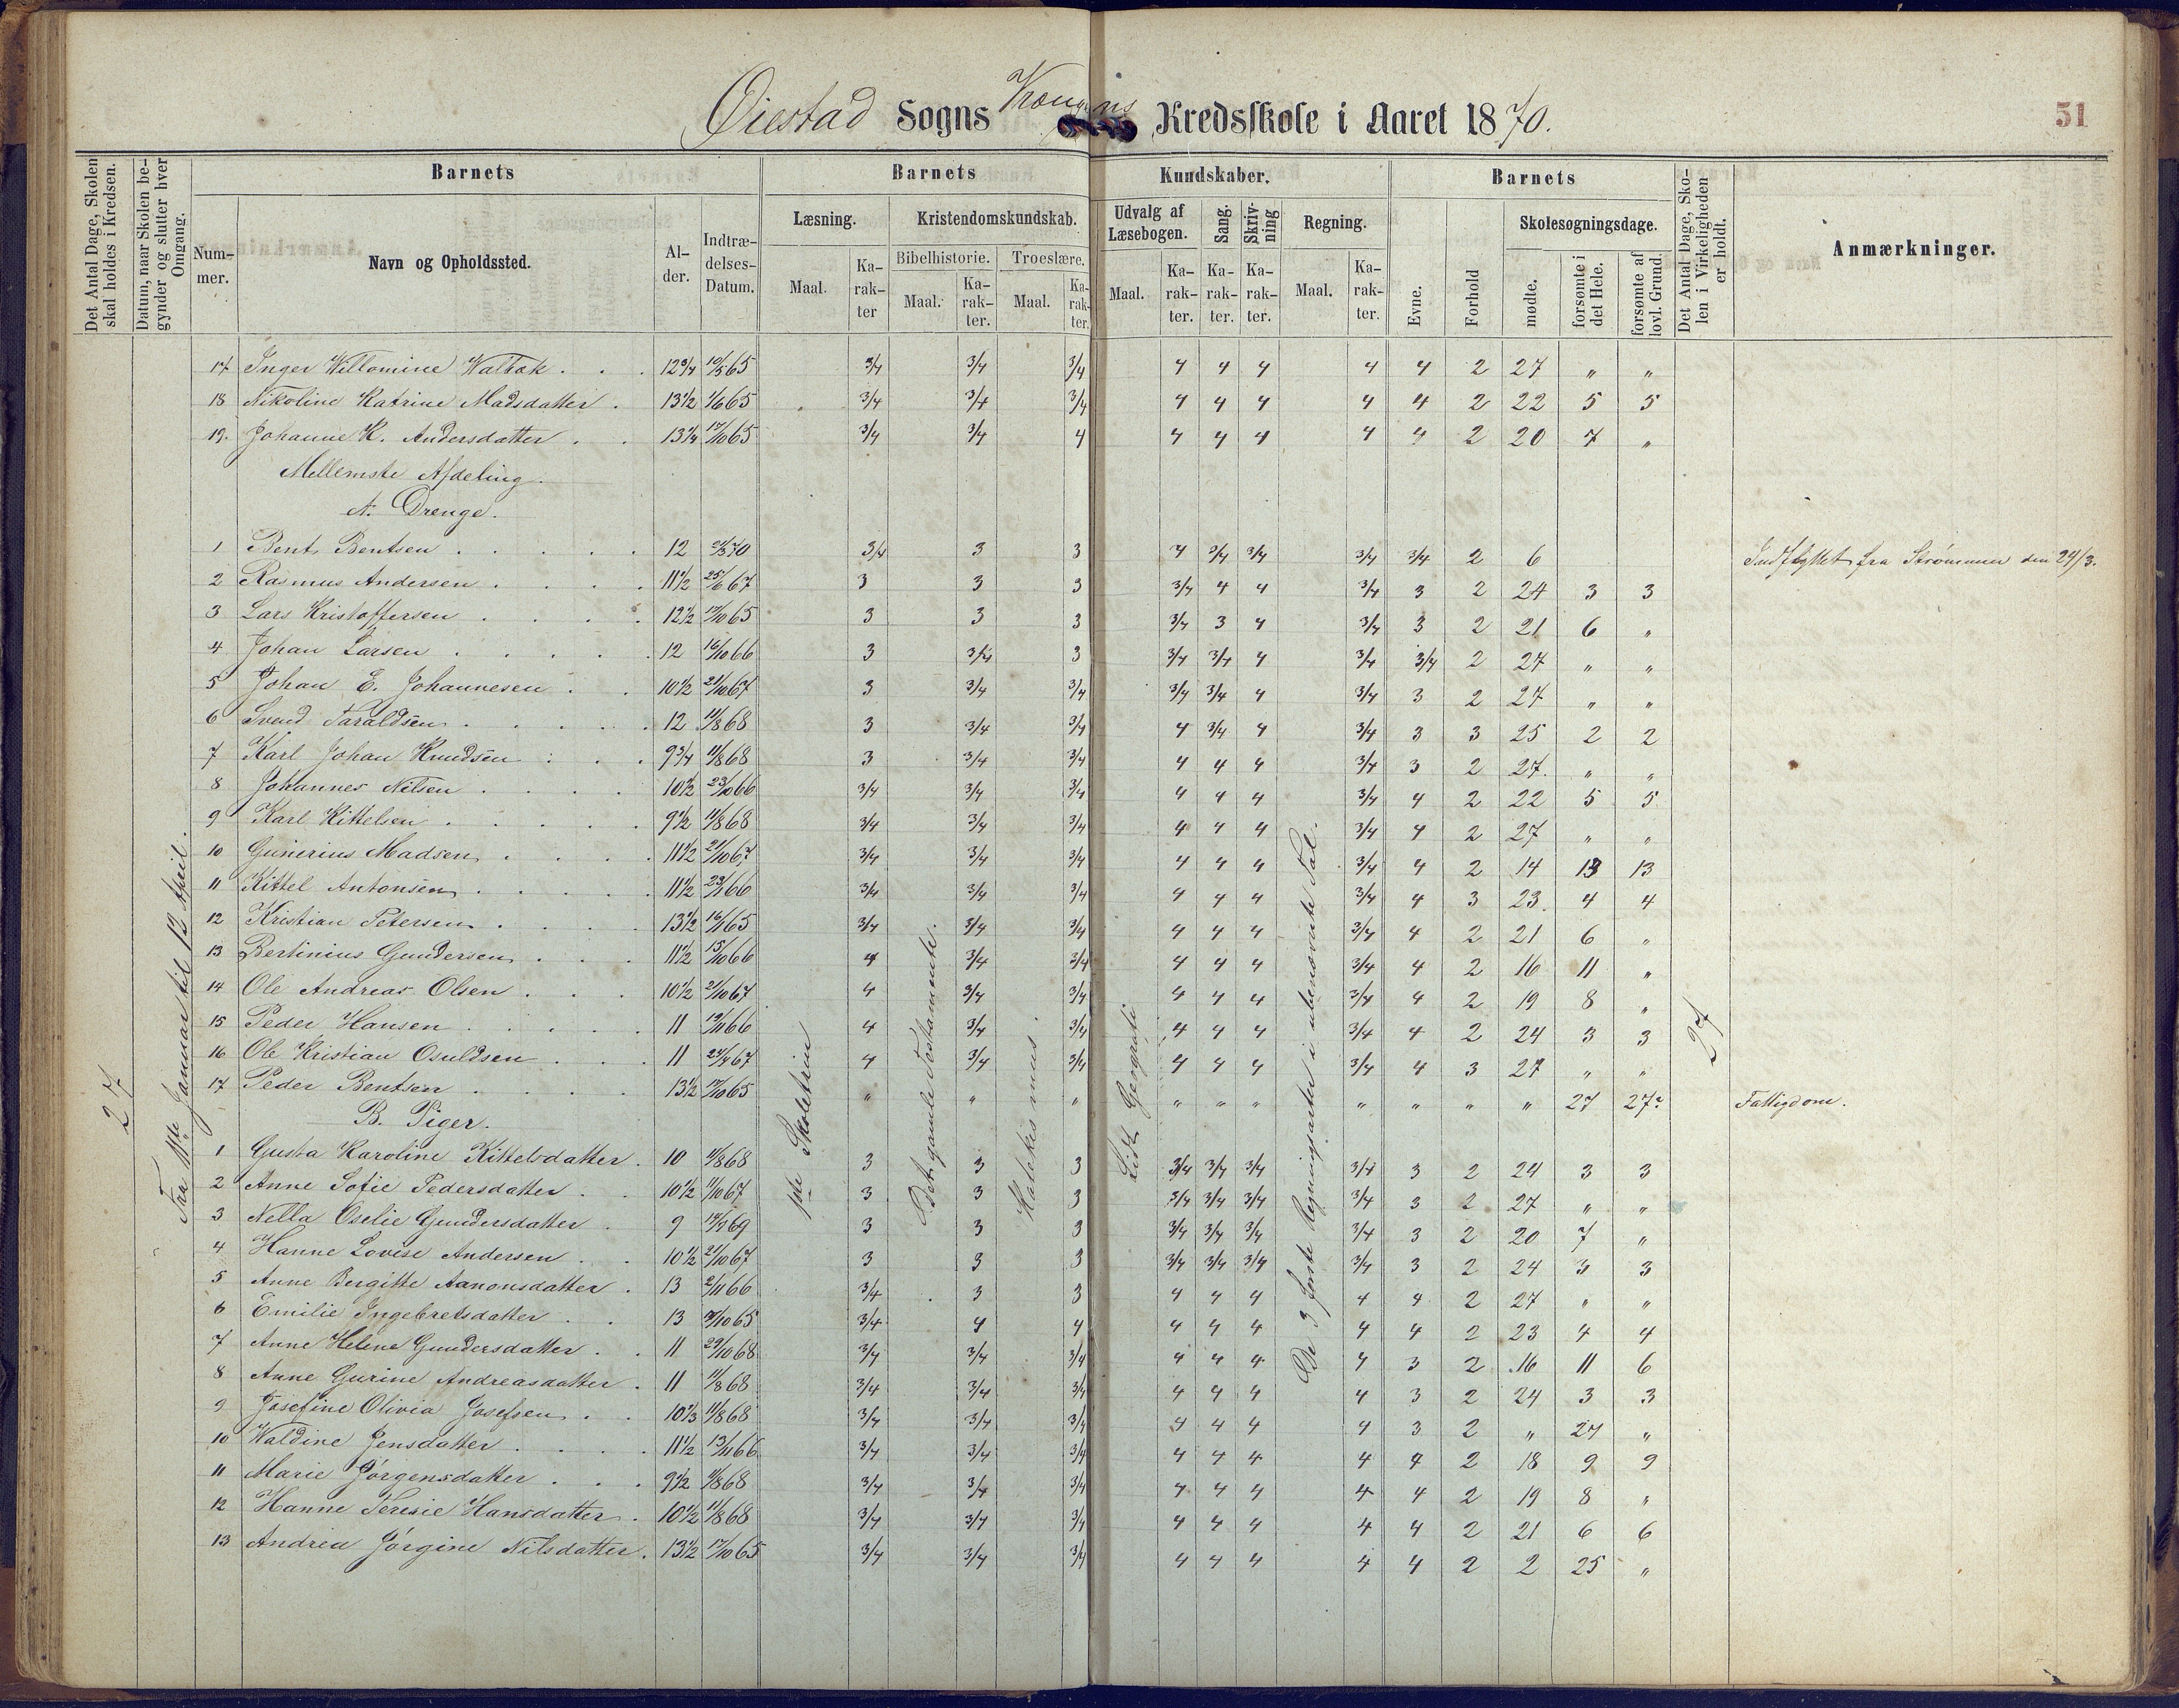 Øiestad Sogns Kredsskole i Aaret 1870.
51
Det Antal Dage, Skolen skal holdes i Kredsen.
Datum, naar Skolen begynder og slutter hver Omgang.
Barnets
Nummer.
Navn og Opholdssted.
Alder.
Indtrædelses-Datum.
Barnets Kundskaber.
Læsning.
Maal.
Karakter
Kristendomskundskab.
Bibelhistorie.
Maal.
Karakter.
Troeslære.
Maal.
Karakter.
Udvalg af Læsebogen.
Maal.
Karakter.
Sang.
Karakter.
Skrivning
Karakter.
Regning.
Maal.
Karakter.
Barnets
Evne.
Forhold
Skolesøgningsdage.
mødte.
forsømte i det Hele.
forsømte af lovl. Grund.
Det Antal Dage, Skolen i Virkeligheden er holdt.
Anmærkninger.
17 Inger Willomine 12 3/4 10/5 65 3/4 3/4 3/4 4 4 4 4 4 2 27 " "
18 Nikoline Katrine Madsdatter 13 1/2 1/6 65 3/4 3/4 3/4 4 4 4 4 4 2 22 5 5
19. Johanne K. Andersdatter 13 1/4 17/10 65 3/4 3/4 4 4 4 4 4 4 2 20 7 "
Mellemste Afdeling.
A. Drenge.
1 Bent Bentsen 12 70 3/4 3 3 4 3/4 3/4 3/4 3/4 2 6 Indflyttet fra Strømmen den 24/3.
2 Rasmus Andersen 11 1/2 25/6 67 3 3 3 3/4 4 4 3/4 3 2 24 3 3
3 Lars Kristoffersen 12 1/2 17/10 65 3 3 3 3/4 3 4 3/4 3 2 21 6 "
4 Johan Larsen 12 16/10 66 3 3/4 3 3/4 3/4 4 3/4 3/4 2 27 " "
5 Johan E. Johannesen 10 1/2 21/10 67 3 3/4 3/4 3/4 3/4 4 3/4 3 2 27 " "
6 Svend Taraldsen 12 11/8 68 3 3/4 3/4 4 3/4 4 3/4 3 3 25 2 2
7 Karl Johan Knudsen 9 3/4 11/8 68 3 3/4 3/4 4 4 4 3/4 3 2 27. " "
8 Johannes Nilsen 10 1/2 23/10 66 3/4 3/4 3/4 4 4 4 3/4 4 2 22 5 5
9 Karl Kittelsen 9 1/2 11/8 68 3/4 3/4 3/4 4 4 4 3/4 4 2 27 " "
10 Gunerius Madsen 11 1/2 21/10 67 3/4 3/4 3/4 4 4 4 3/4 4 2 14 13 13
11 Kittel Antonsen 11 1/2 23/1 66 3/4 3/4 3/4 4 4 4 3/4 4 3 23. 4 4
12 Kristian Petersen 13 1/2 16/1 65 3/4 3/4 3/4 4 4 4 3/4 4 2 21 6 "
13 Bertinius Gundersen 11 1/2 15/10 66 4 3/4 3/4 4 4 4 3/4 4 2 16 11 "
14 Ole Andreas Olsen 10 1/2 21/10 67 4 3/4 3/4 4 4 4 3/4 4 2 19 8 "
15 Peder Hansen 11 19/11 66 4 3/4 3/4 4 4 4 3/4 4 2 24 3 3
16 Ole Kristian Osuldsen 11 24/4 67 4 3/4 3/4 4 4 4 3/4 4 3 27 " "
17 Peder Bentsen 13 1/2 17/10 65 " " " " " " " " " " 27 27 Fattigdom.
B. Piger.
1 Gusta Karoline Kittelsdatter 10 11/8 68 3 3 3 3/4 3/4 3/4 3/4 3 2 24 3 3
2 Anne Sofie Pedersdatter 10 1/2 11/10 67 3 3 3 3/4 3/4 3/4 3/4 3 2 27 " "
3 Nella Oselie Gundersdatter 9 69 3 3 3 3/4 3/4 3/4 3/4 3 2 20 7 "
4 Hanne Lovise Andersen 10 1/2 21/10 67 3 3 3 3/4 3/4 3/4 3/4 3 2 24 3 3
5 Anne Bergitte Aanonsdatter 13 2/11 66 3/4 3 3 4 4 4 4 4 2 27 " "
6 Emilie Ingebretsdatter 13 65 3/4 4 4 4 4 4 4 4 2 23 4 4
7 Anne Helene Gundersdatter 11 29/10 68 3/4 3/4 3/4 4 4 4 4 3 2 16 11 6
8 Anne Gurine Andreasdatter 11 11/8 68 3/4 3/4 3/4 4 4 4 4 3 2 24 3 3
9 Josefine Olivia Josefsen 10 1/3 11/8 68 3/4 3/4 3/4 4 4 4 4 3 2 " 27 "
10 Waldine Jensdatter 11 1/2 13/11 66 3/4 3/4 3/4 4 4 4 4 4 2 18 9 9
11 Marie Jørgensdatter 9 1/2 11/8 68 3/4 3/4 3/4 4 4 4 4 4 2 19 8 "
12 Hanne Teresie Hansdatter 10 1/2 11/8 68 3/4 3/4 3/4 4 4 4 4 4 2 21 6 6
13 Andrea Jørgine Nilsdatter. 13 1/2 17/10 65 3/4 3/4 3/4 4 4 4 4 4 2 2 25 "
27
Fra 11te Januar til 12 April.
1ste Skoletrin
Det gamle Testamente.
Katekismus.
Lidt Geografi
De 3 første Regningsarter i ubenævnte Tal.
27